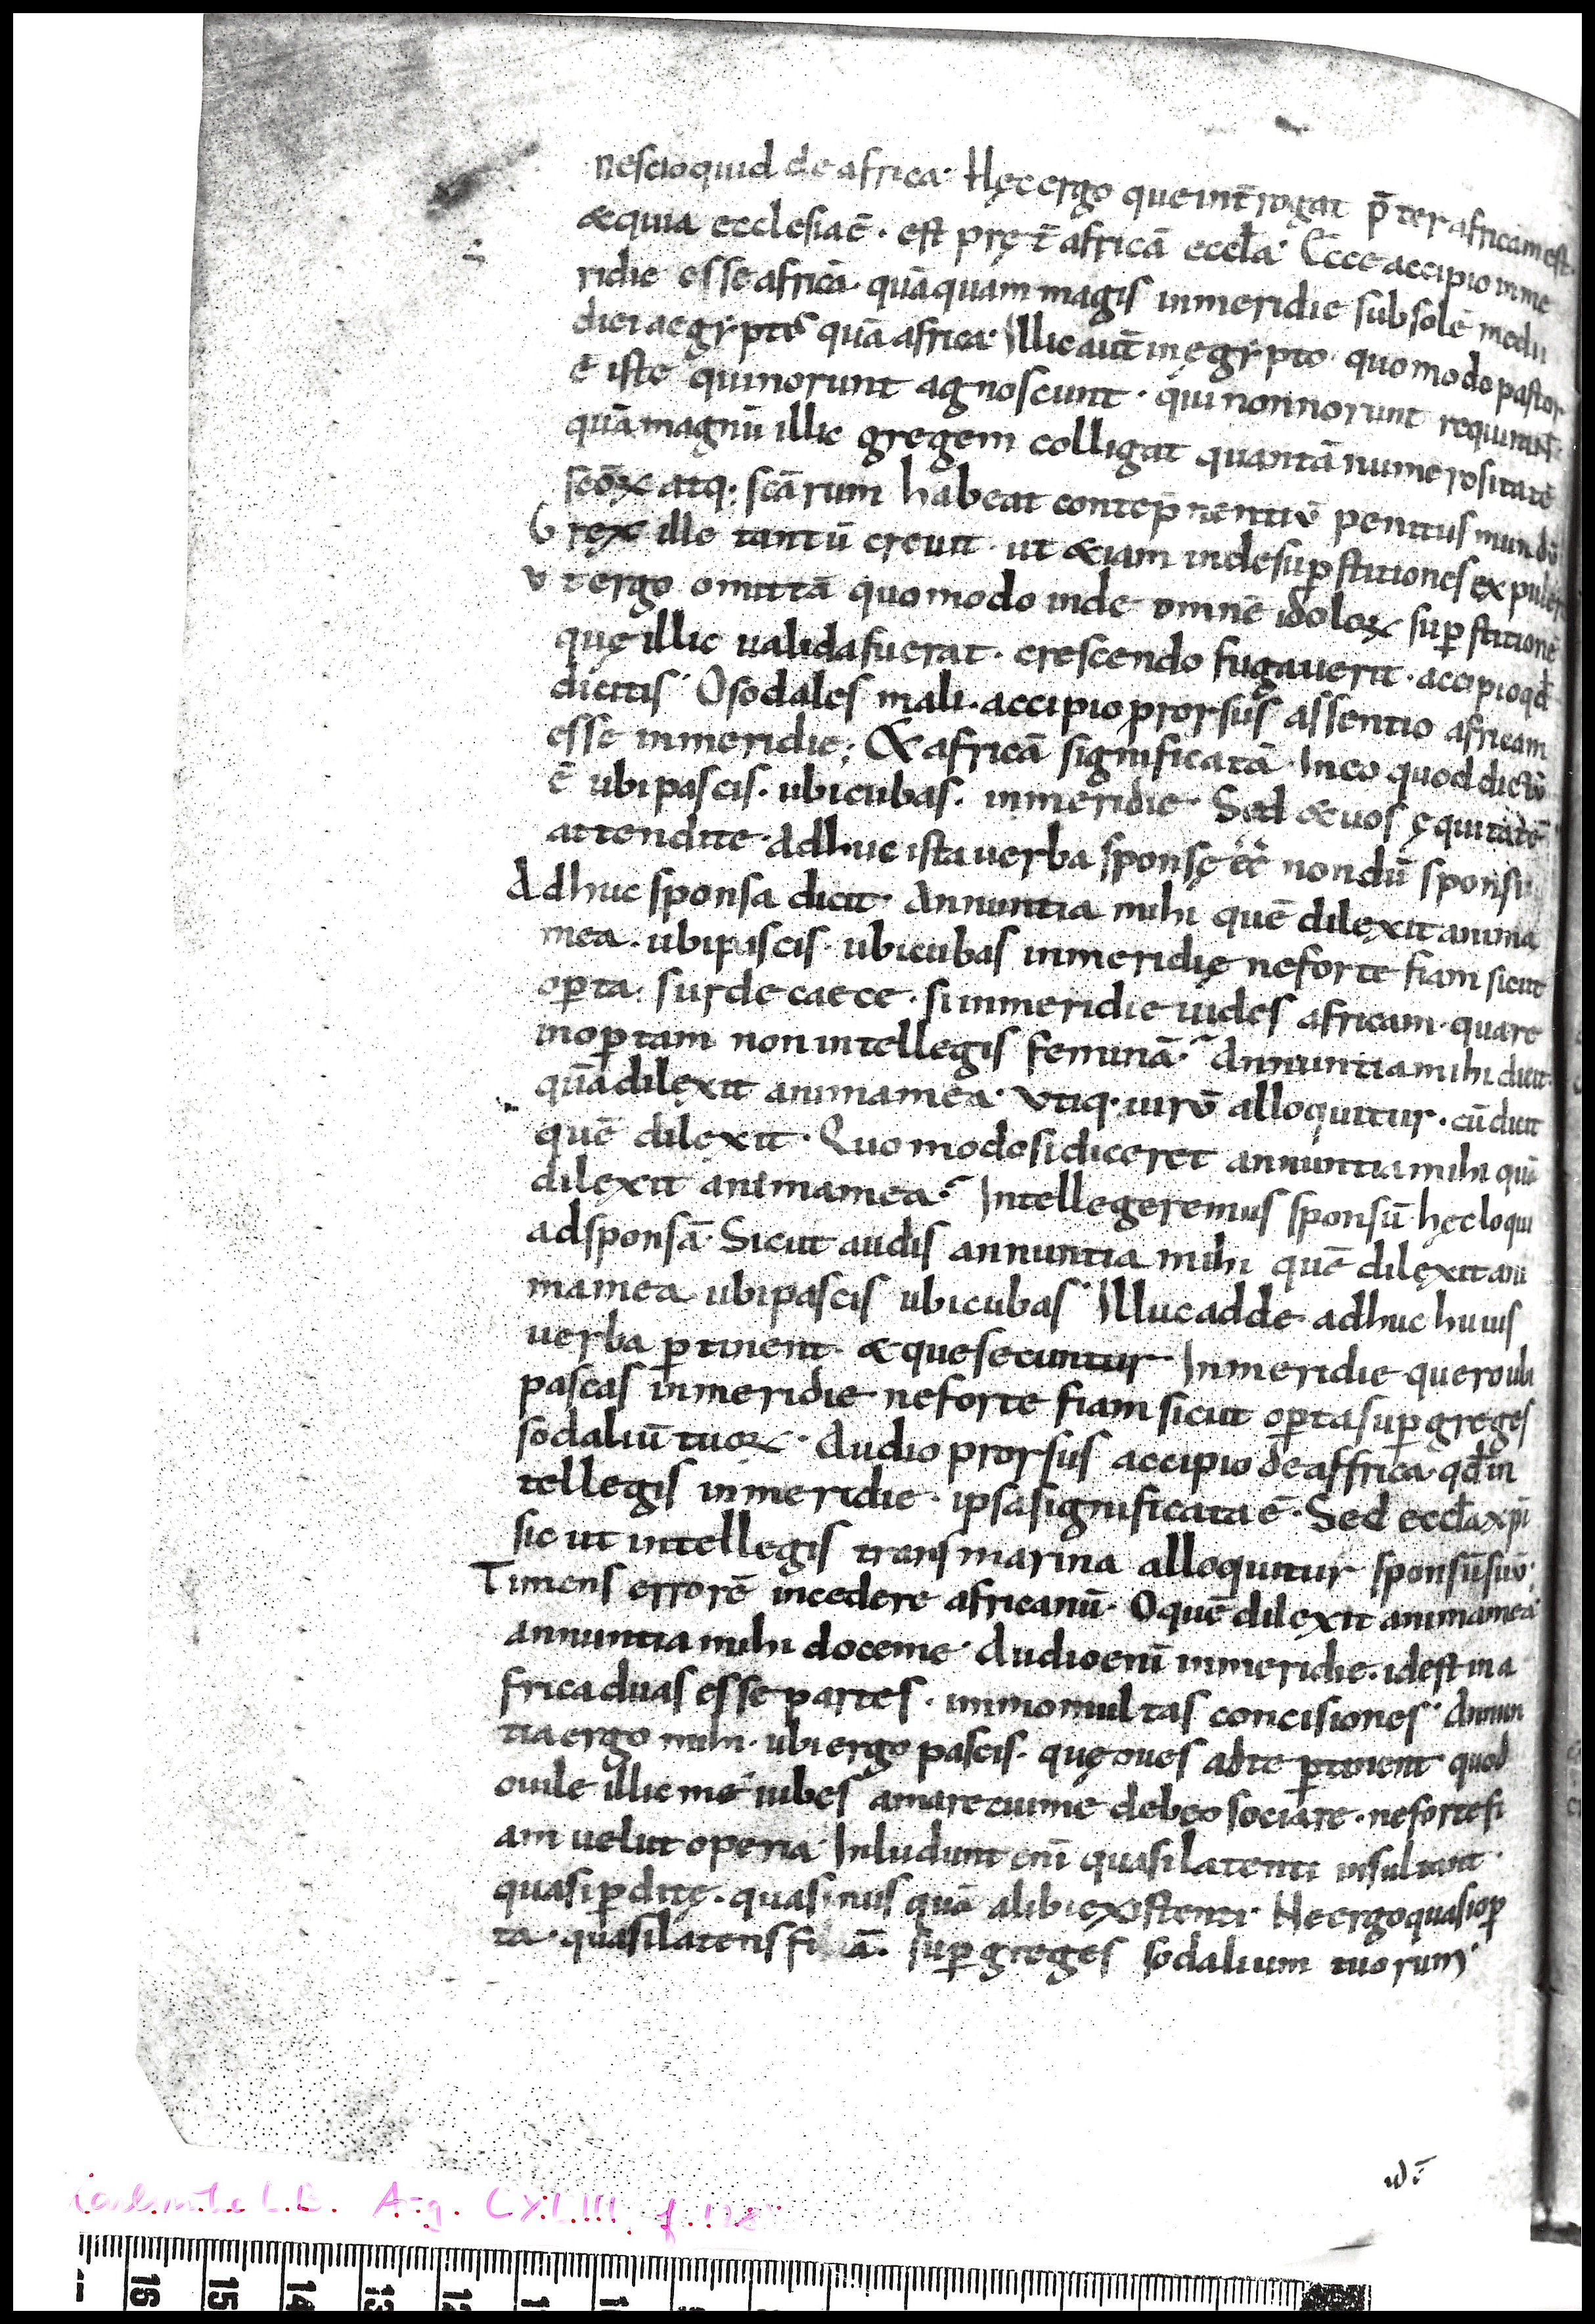 nescioquid de africa· Hęc ergo que int̄rogat p̄ter africam est·
&quia ecclesia ē· est prę t̄ africā eccƚa· Ecce accipio inme
ridie esse africā· quāquam magis inmeridie subsole medii
diei aegyptus quā africa· Illic aut̄ inęgypto· quomodo pastor
ē iste quinorunt agnoscunt· qui nonnorunt requirant·
quāmagnū illic gregem colligat quantā numerositatē
scōꝝ atq· scārum habeat contēpnentiū penitus mundū
Grex ille tantū creuit· ut &iam indesuꝑstitiones expuler&
Vt ergo omittā quomodo inde omnē idoloꝝ suꝑstitionē
quę illic ualidafuerat· crescendo fugauerit· accipioqđ
dicitis· Osodales mali· accipio prorsus assentio africam
esse inmeridie; & africā significatā· Ineo quod dictū
ē ubi pascis· ubicubas· inmeridie· Sed & uos ęquitatē
attendite· Adhuc ista uerba sponsę eē nondū sponsi·
Adhuc sponsa dicit· Annuntia mihi quē dilexit anima
mea· ubipascis· ubicubas inmeridię neforte fiam sicut
oꝑta· surde caece· si inmeridie uides africam· quare
inoꝑtam non intellegis feminā· Annuntiamihi dicit·
quā dilexit animamea· Vtiq· uirū alloquitur· cū dicit
quē dilexit· Quomodo si diceret annuntiamihi quā
dilexit animamea· Intellegeremus sponsū hęc loqui
adsponsā· Sicut audis annuntia mihi quē dilexit ani
mamea ubipascis ubicubas· Illuc adde· adhuc huius
uerba ꝑtinent· & que secuntur· Inmeridie· quero ubi
pascas inmeridie neforte fiam sicut oꝑta suꝑ greges
sodaliū tuoꝝ· Audio prorsus accipio de affrica· qđ in
tellegis inmeridie· ipsa significata ē· Sed eccƚa xpi
sicut intellegis transmarina alloquitur sponsū suū·
Timens errorē incedere africanū· Oquē dilexit animamea·
annuntia mihi doceme· Audio enī inmeridie· idest in a
frica duas esse partes· immomultas concisiones· Annun
tia ergo mihi· ubi ergo pascis· quę oues adte ꝑtinent quod
ouile illic me iubes amare cuime debeo sociare· neforte fi
am uelut operta· Inludunt enī quasi latenti insultant·
quasi ꝑditę· quasi nus quā alibi existenti· Ne ergo quasi oꝑ
ta· quasi latens fiā· suꝑ greges sodalium tuorum·